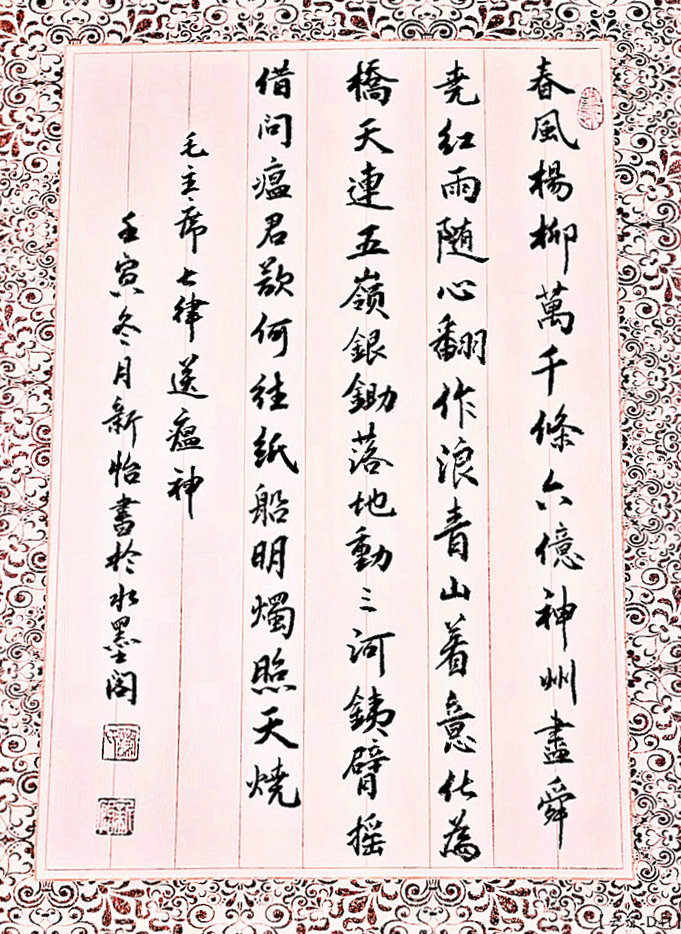 春風楊柳萬千條六億神州盡舜
堯紅雨随心翻作浪青山着意化為
橋天連五嶺銀鋤落地動三河鐵臂摇
借问瘟君欲何往紙船明燭照天燒
毛主席七律送瘟神
壬寅冬月新怡書於水墨阁